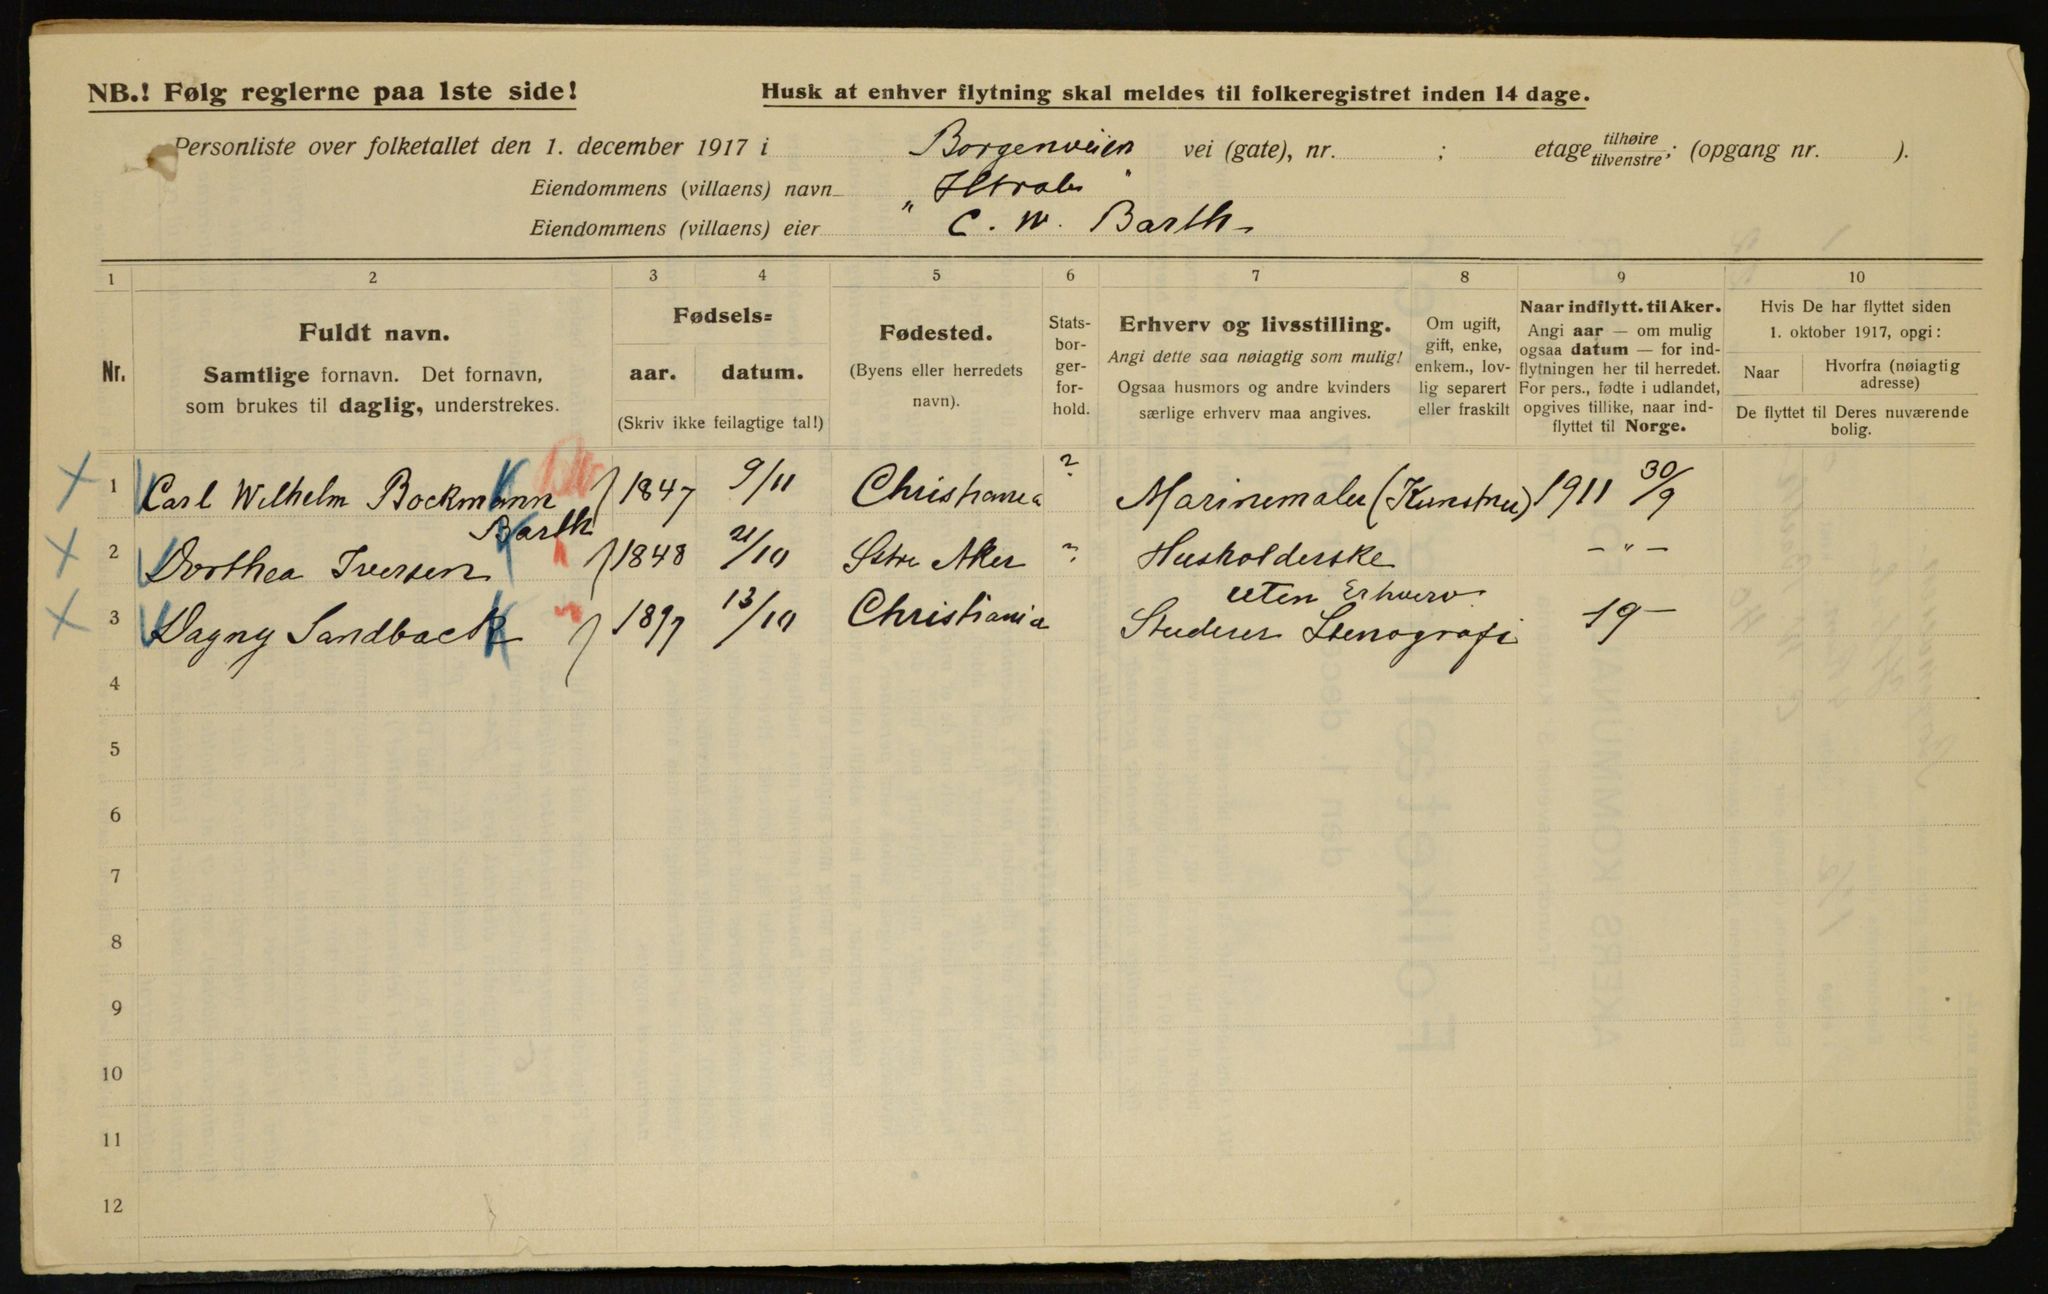 NB.! Følg reglerne paa 1ste side!
Husk at enhver flytning skal meldes til folkeregistret inden 14 dage.
Personliste over folketallet den 1. december 1917 i Borgenveien vei (gate), nr. ; etage tilhøire tilvenstre; (opgang nr. ).
Eiendommens (villaens) navn
Eiendommens (villaens) eier C. W. Barth
1 2 3 4 5 6 7 8 9 10
Nr.
Fuldt navn.
Samtlige fornavn. Det fornavn,
som brukes til daglig, understrekes.
Fødsels=
aar. datum.
(Skriv ikke feilagtige tal!)
Fødested.
(Byens eller herredets
navn).
Stats-
bor-
ger-
for-
hold.
Erhverv og livsstilling.
Angi dette saa nøiagtig som mulig!
Ogsaa husmors og andre kvinders
særlige erhverv maa angives.
Om ugift,
gift, enke,
enkem., lov-
lig separert
eller fraskilt
Naar indflytt. til Aker.
Angi aar — om mulig
ogsaa datum — for ind-
flytningen her til herredet.
For pers., fødte i utlandet,
opgives tillike, naar ind-
flyttet til Norge.
Hvis De har flyttet siden
1. oktober 1917, opgi:
Naar
Hvorfra (nøiagtig
adresse)
De flyttet til Deres nuværende
bolig.
1 Carl Wilhelm Bockmann 1847 9/11 Christiania ? Marinemaler (Kunstner) 1911 30/9
Barth
2 Dorthea Iversen 1848 21/10 Aker ? Husholderske — " —
uten Erhverv
3 Dagny Sandback 1897 13/10 Christiania Studerer Stenografi 19—
4
5
6
7
8
9
10
11
12